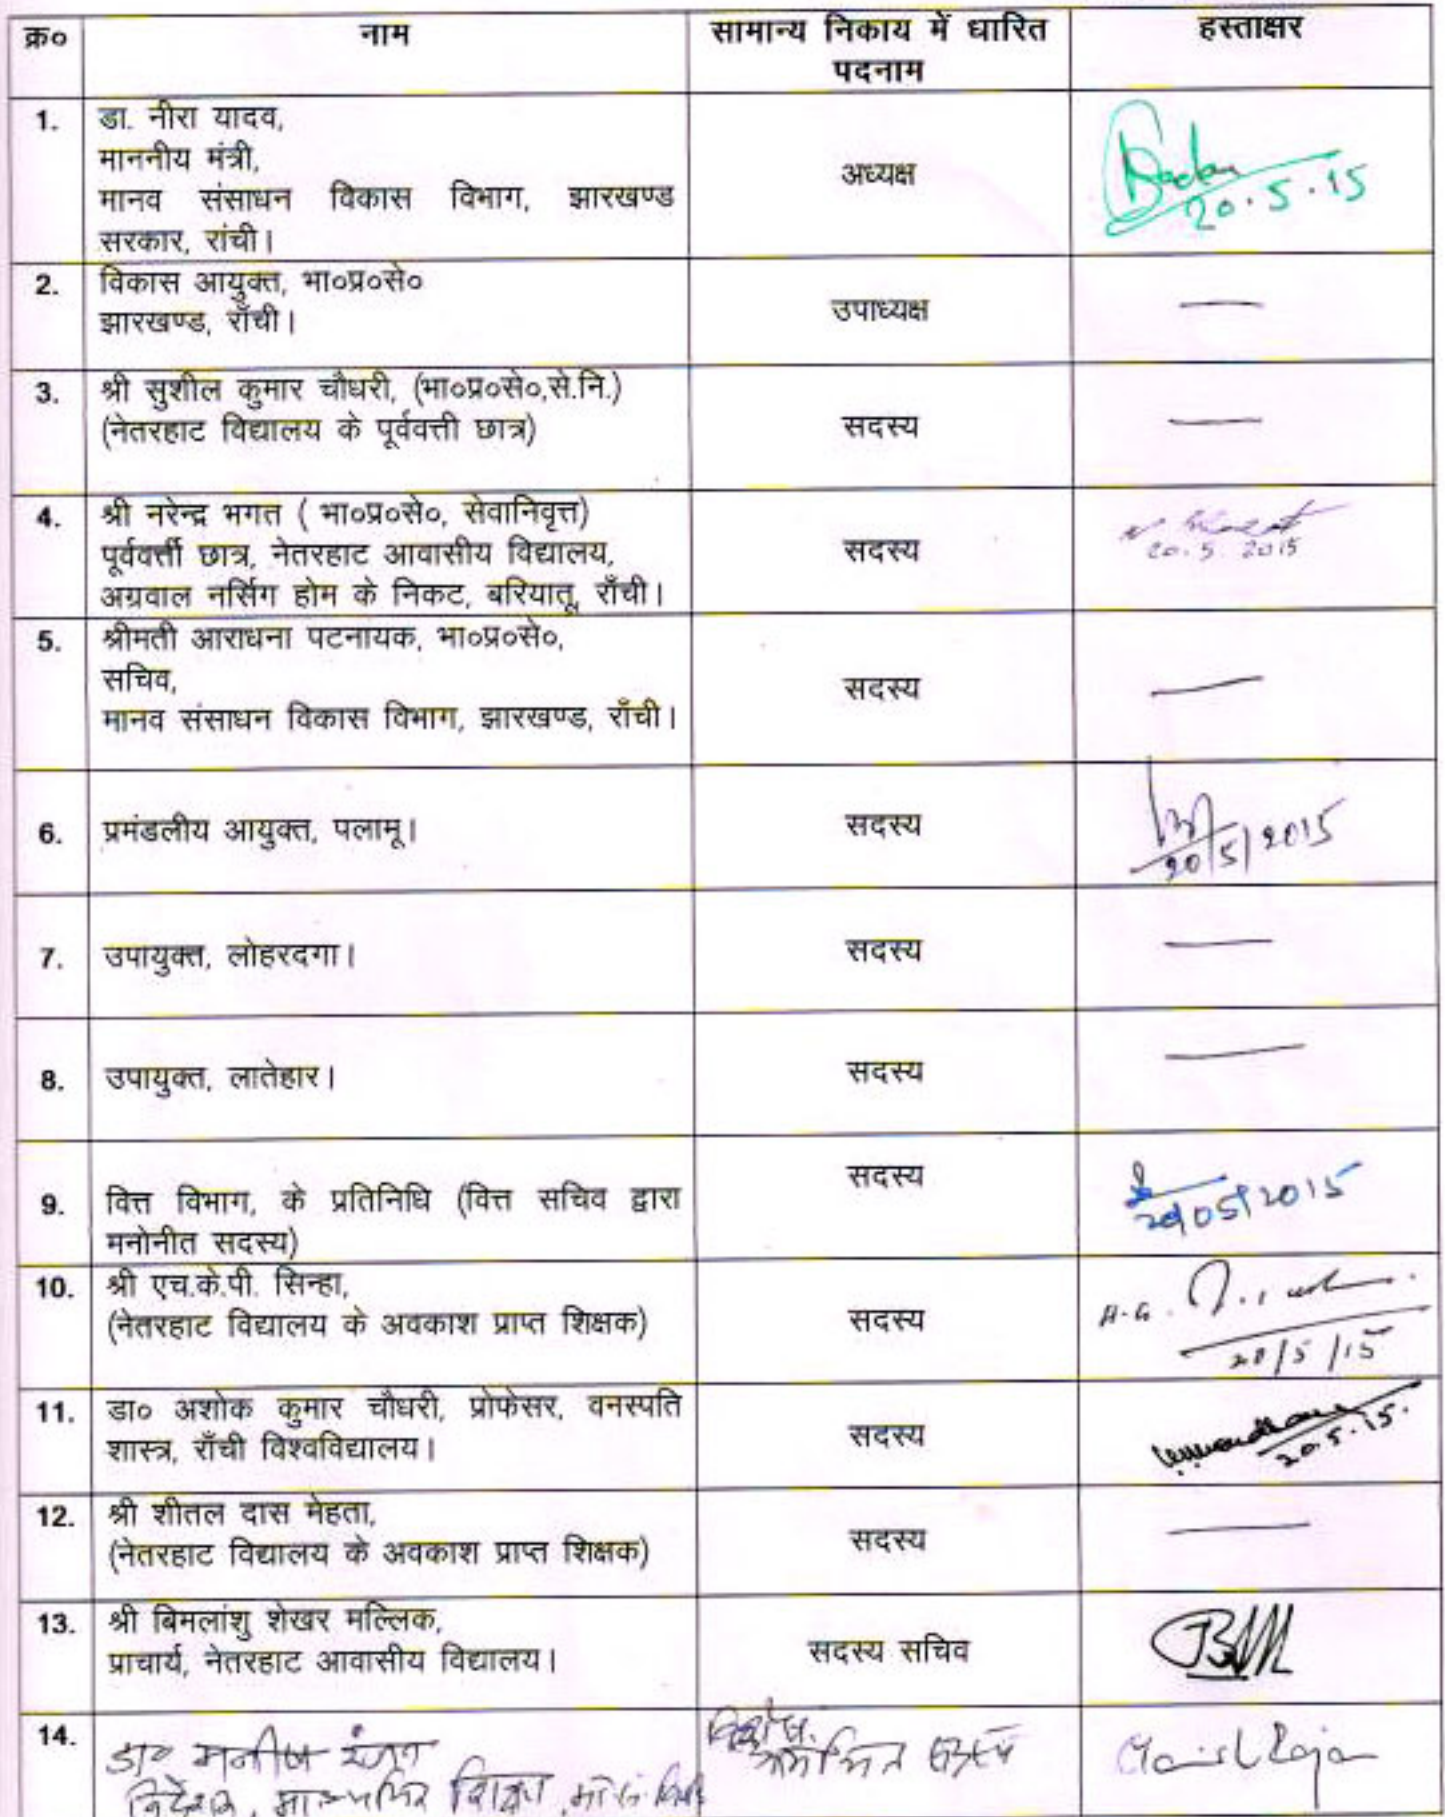 क्र० नाम सामान्य निकाय में धारित हस्ताक्षर
पदनाम
1. डा. नीरा यादव,
माननीय मंत्री,
मानव संसाधन विकास विभाग, झारखण्ड
सरकार, रांची।
अध्यक्ष
20.5.15
2. विकास आयुक्त, भा०प्र०से०
झारखण्ड, राँची।
उपाध्यक्ष
—
3. श्री सुशील कुमार चौधरी, (भा०प्र०से०,से.नि.)
(नेतरहाट विद्यालय के पूर्ववत्ती छात्र)
सदस्य
—
4. श्री नरेन्द्र भगत ( भा०प्र०से०, सेवानिवृत्त)
पूर्ववर्त्ती छात्र, नेतरहाट आवासीय विद्यालय,
अग्रवाल नर्सिग होम के निकट, बरियातू, राँची।
सदस्य
20.5.2015
5. श्रीमती आराधना पटनायक, भा०प्र०से०,
सचिव,
मानव संसाधन विकास विभाग, झारखण्ड, राँची।
सदस्य
—
6. प्रमंडलीय आयुक्त, पलामू।
सदस्य
20/5/2015
7. उपायुक्त, लोहरदगा।
सदस्य
—
8. उपायुक्त, लातेहार।
सदस्य
—
9. वित्त विभाग, के प्रतिनिधि (वित्त सचिव द्वारा
मनोनीत सदस्य)
सदस्य
20/05/2015
10. श्री एच.के.पी. सिन्हा,
(नेतरहाट विद्यालय के अवकाश प्राप्त शिक्षक)
सदस्य
20/5/15
11. डा० अशोक कुमार चौधरी, प्रोफेसर, वनस्पति
शास्त्र, राँची विश्वविद्यालय।
सदस्य
20.5.15.
12. श्री शीतल दास मेहता,
(नेतरहाट विद्यालय के अवकाश प्राप्त शिक्षक)
सदस्य
—
13. श्री बिमलांशु शेखर मल्लिक,
प्राचार्य, नेतरहाट आवासीय विद्यालय।
सदस्य सचिव
14. डा० मनीष रंजन
निदेशक, माध्यमिक शिक्षा,
विशेष
आमंत्रित सदस्य